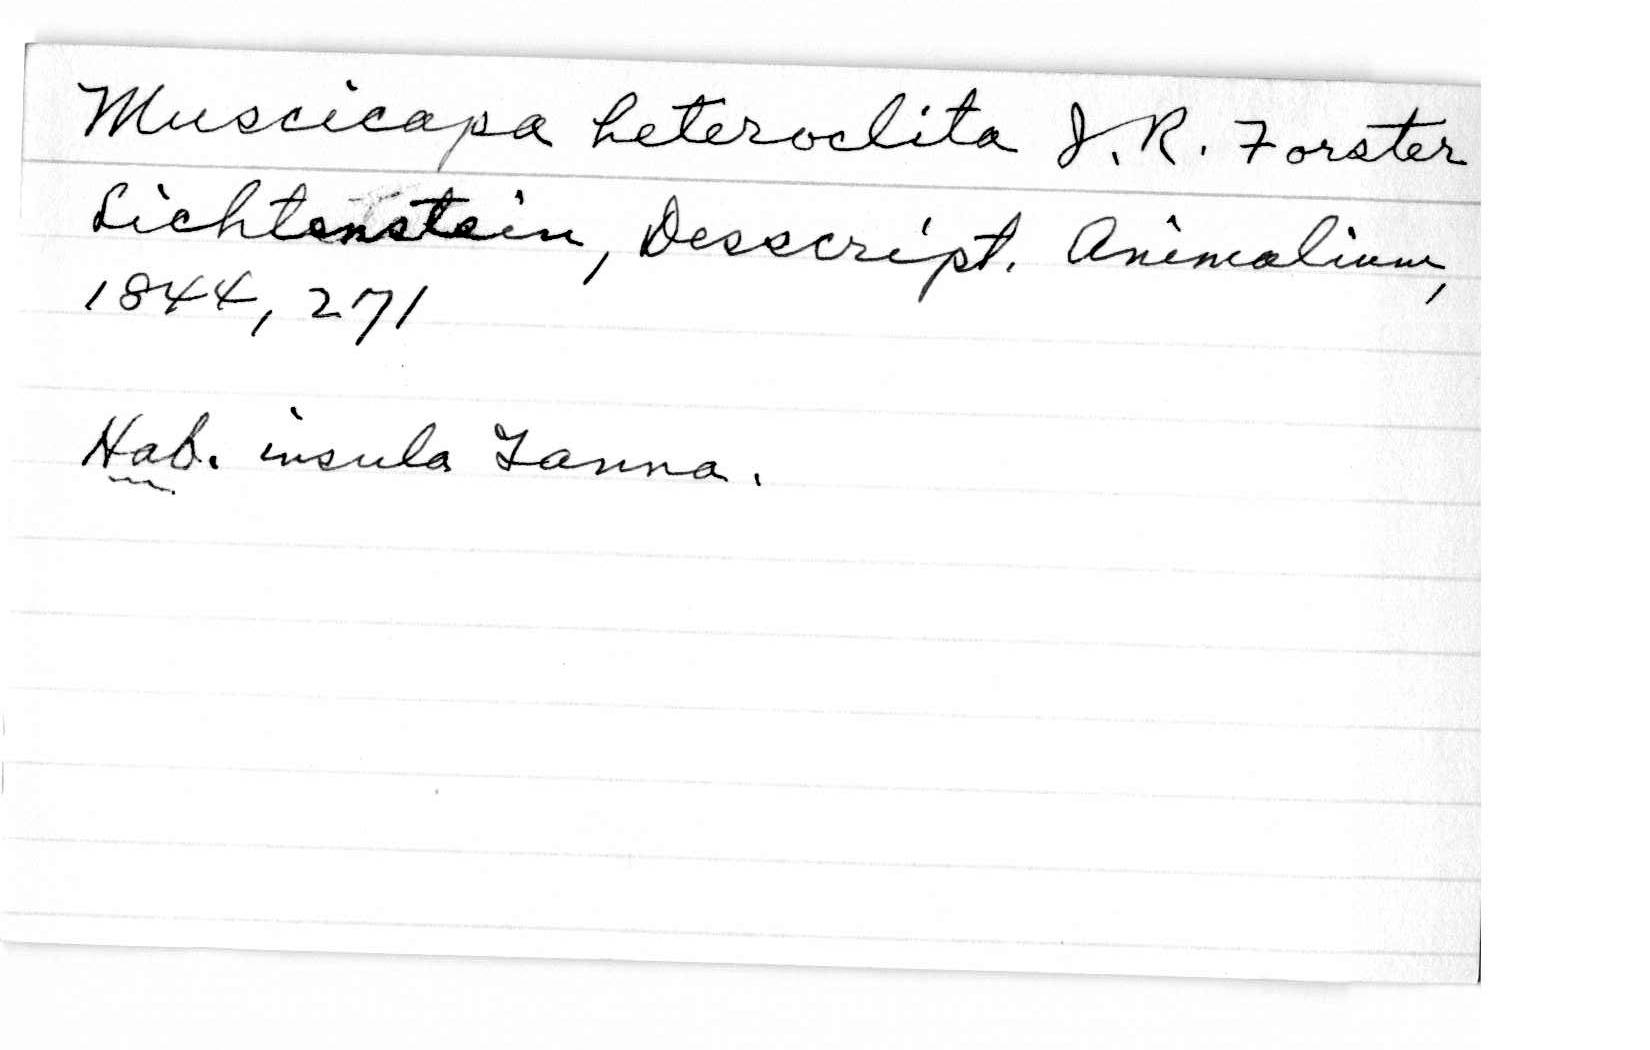 Muscicapa heteroclita J. R. Forster
Lichtenstein, Descript. Animalium,
1844, 271
Hab. insula Tanna.